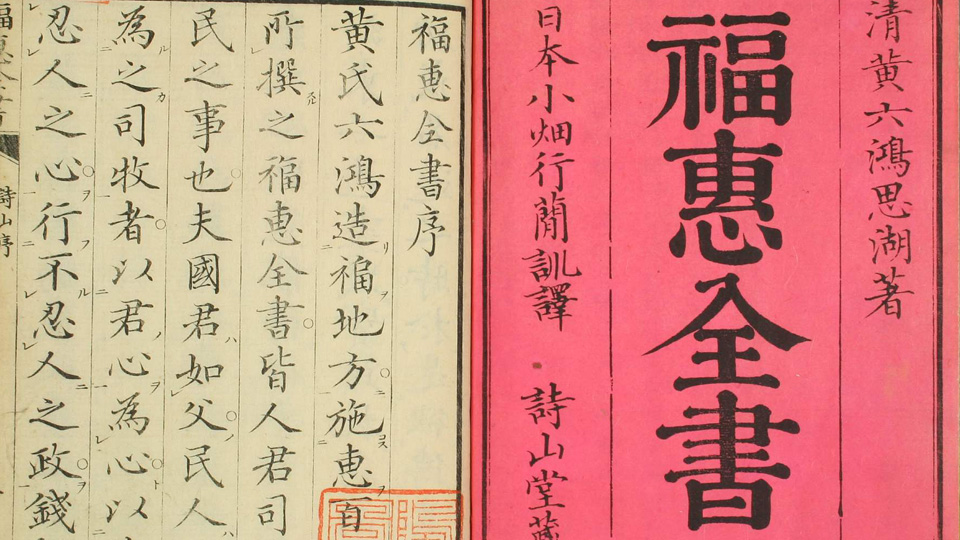 清黄六鴻思湖著
福惠全書
日本小畑行蕳訓譯 詩山堂藏
福惠全書序
黄氏六鴻造福地方施惠百
所撰之福惠全書皆人君司
民之事也夫國君如父民人
為之司牧者以君心為心以
忍人之心行不忍人之政錢
福惠全書 詩山序